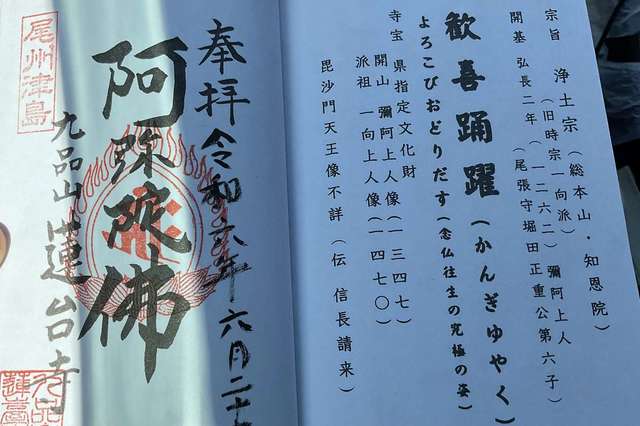 宗旨 浄土宗(総本山・知恩院)
(旧時宗一向派)
開基 弘長二年(一二六二)彌阿上人
(尾張守堀田正重公第六子)
歓喜踊躍(かんぎゆやく)
よろこびおどりだす(念仏往生の究極の姿)
寺宝 県指定文化財
開山 彌阿上人像(一三四七)
派祖 一向上人像(一四七〇)
毘沙門天王像不詳(伝 信長請来)
奉拝 令和六年 六月二十
阿弥陀佛
尾州津島
九品山 蓮台寺
九品
蓮臺